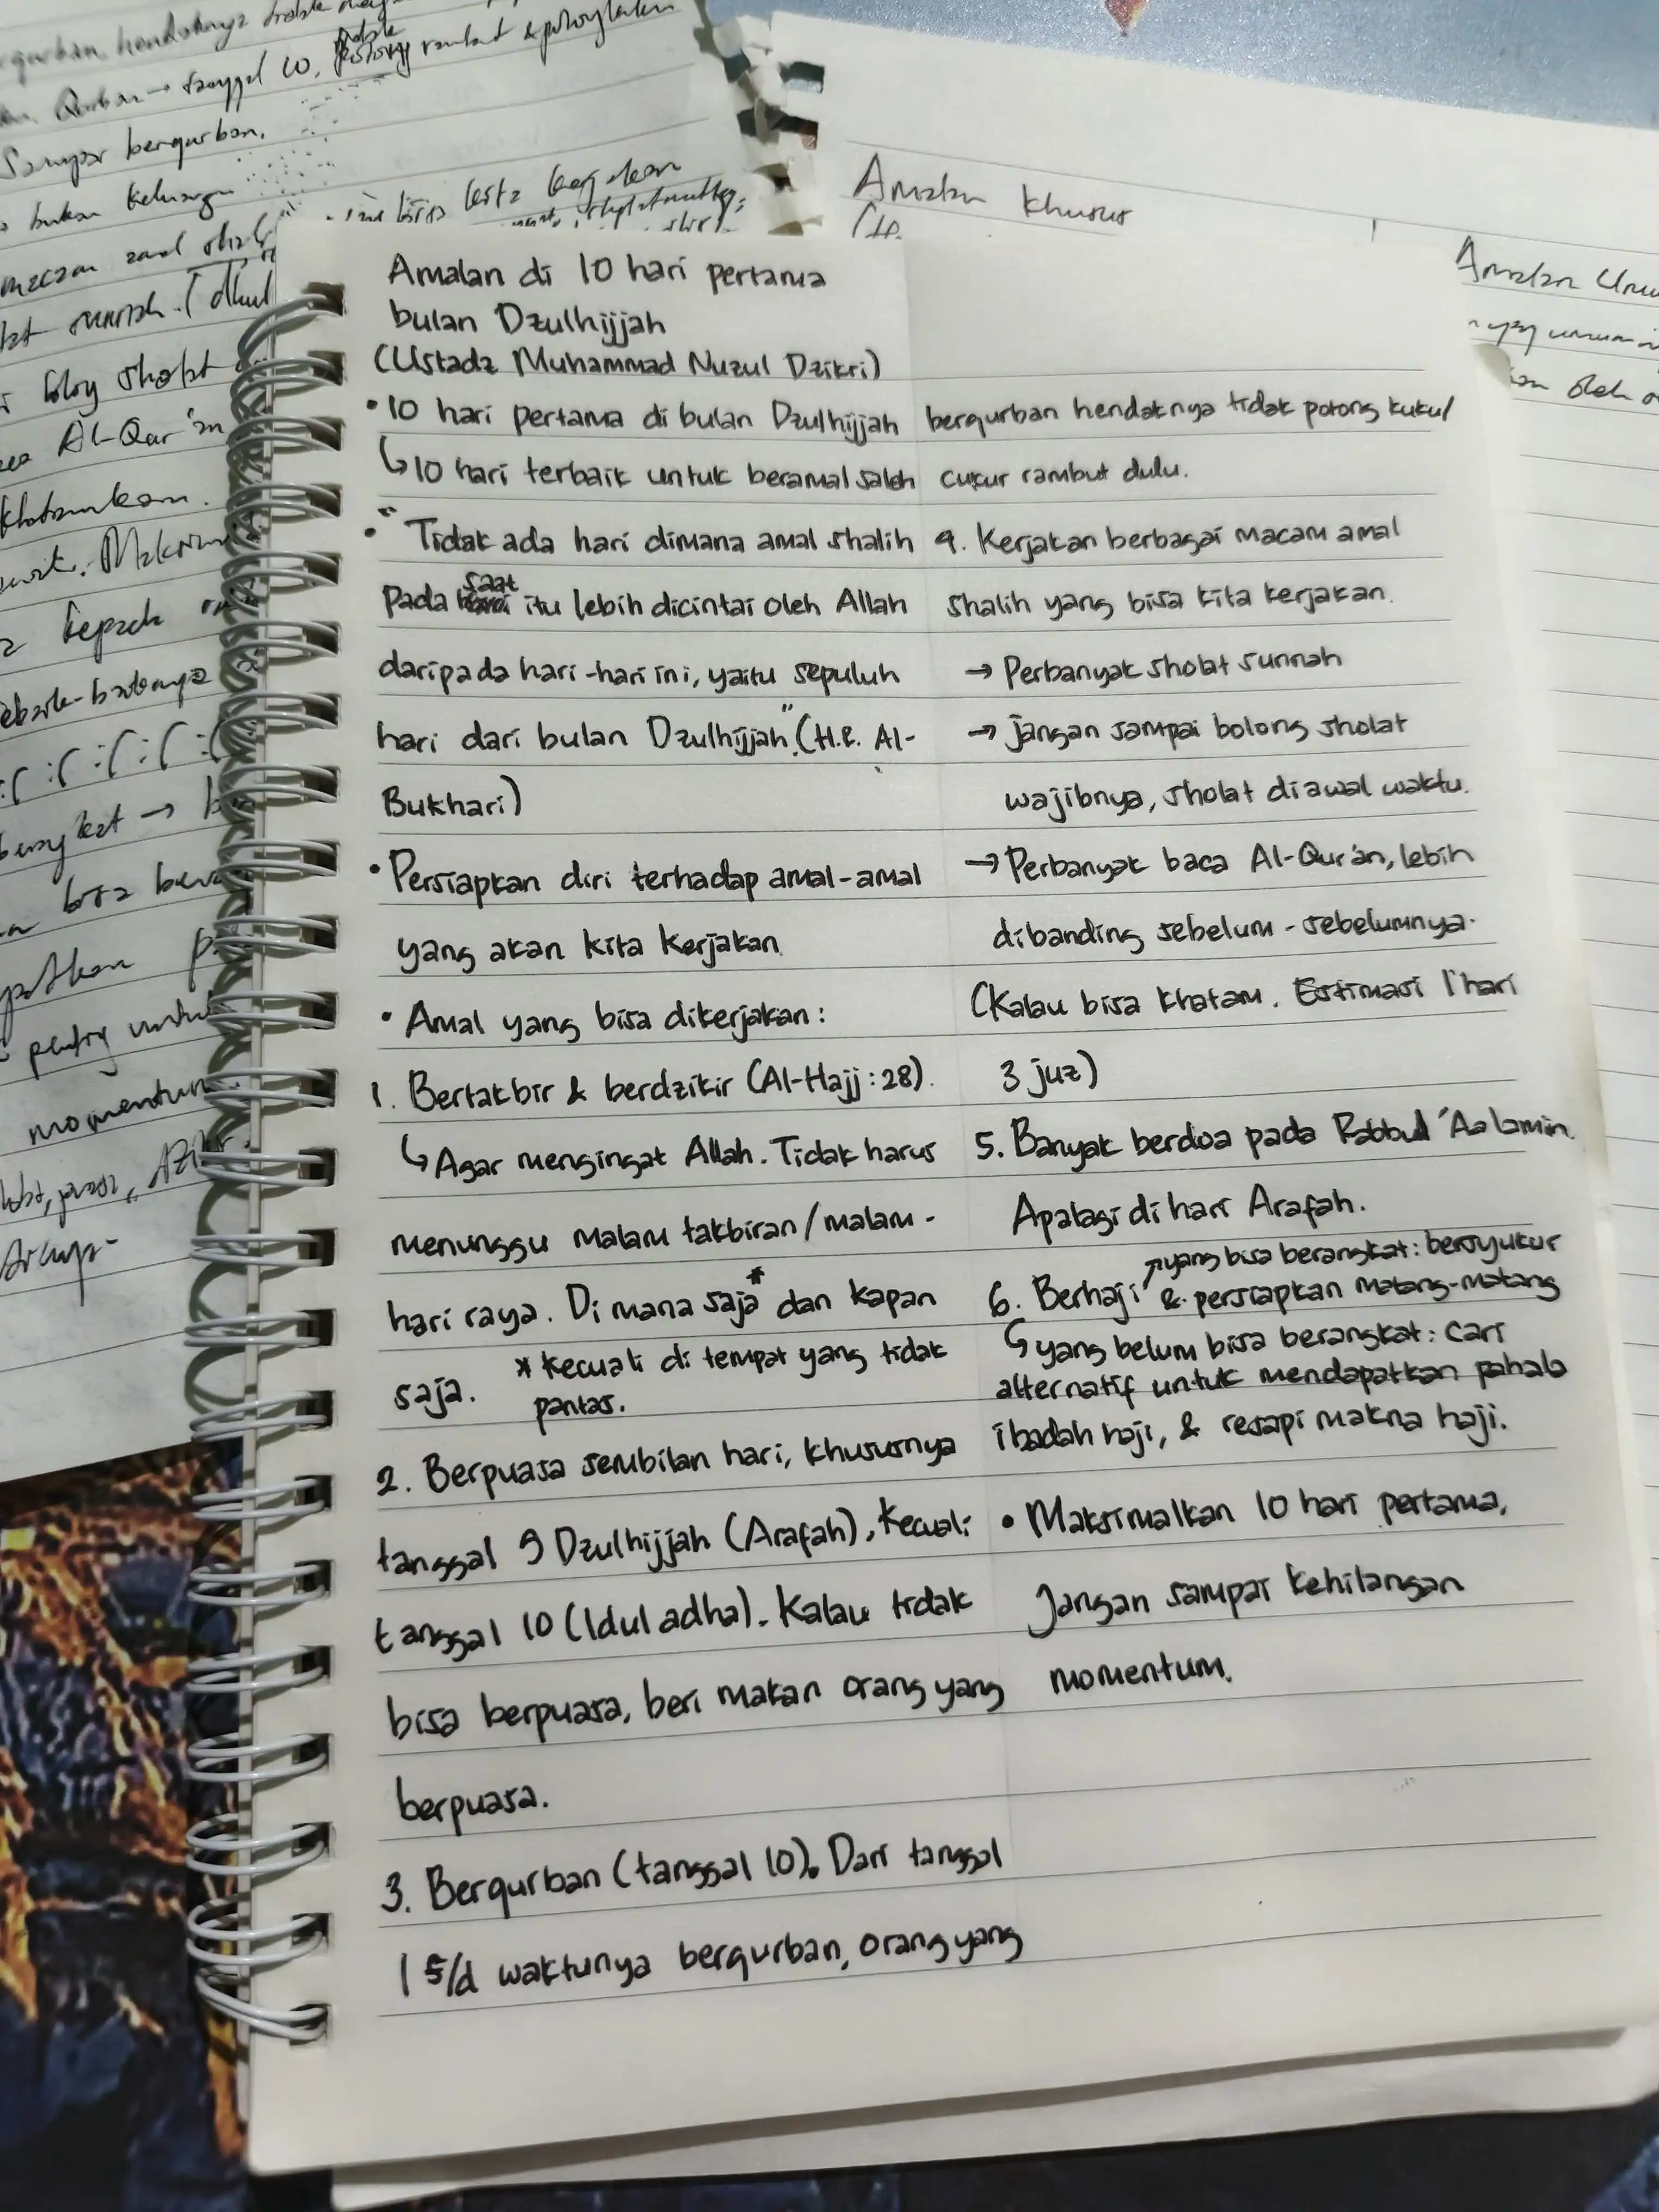 Amalan di 10 hari pertama
bulan Dzulhijjah
(Ustadz Muhammad Nuzul Dzikri)
• 10 hari pertama di bulan Dzulhijjah
↳ 10 hari terbaik untuk beramal saleh
• "Tidak ada hari dimana amal shalih
pada saat itu lebih dicintai oleh Allah
daripada hari-hari ini, yaitu sepuluh
hari dari bulan Dzulhijjah." (H.R. Al-
Bukhari)
• Persiapkan diri terhadap amal-amal
yang akan kita kerjakan
• Amal yang bisa dikerjakan:
1. Bertakbir & berdzikir (Al-Hajj:28).
↳ Agar mengingat Allah. Tidak harus
menunggu malam takbiran/malam-
hari raya. Di mana saja* dan kapan
saja.
* kecuali di tempat yang tidak
pantas.
2. Berpuasa sembilan hari, khususnya
tanggal 9 Dzulhijjah (Arafah), kecuali
tanggal 10 (Idul adha). Kalau tidak
bisa berpuasa, beri makan orang yang
berpuasa.
3. Berqurban (tanggal 10). Dari tanggal
1 s/d waktunya berqurban, orang yang
berqurban hendaknya tidak potong kuku/
cukur rambut dulu.
4. Kerjakan berbagai macam amal
shalih yang bisa kita kerjakan.
→ Perbanyak sholat sunnah
→ jangan sampai bolong sholat
wajibnya, sholat di awal waktu.
→ Perbanyak baca Al-Qur'an, lebih
dibanding sebelum-sebelumnya.
(Kalau bisa khatam. Estimasi 1 hari
3 juz)
5. Banyak berdoa pada Rabbul 'Aalamin.
Apalagi di hari Arafah.
6. Berhaji ↗ yang bisa berangkat: bersyukur
& persiapkan matang-matang
↳ yang belum bisa berangkat: cari
alternatif untuk mendapatkan pahala
ibadah haji, & resapi makna haji.
• Maksimalkan 10 hari pertama,
Jangan sampai kehilangan
momentum.
Amalan khusus
Amalan
oleh
tanggal 10,
bergurban.
bukan keluarga
sholat
Al-Qur'an
khatamkan.
kepada
momentum